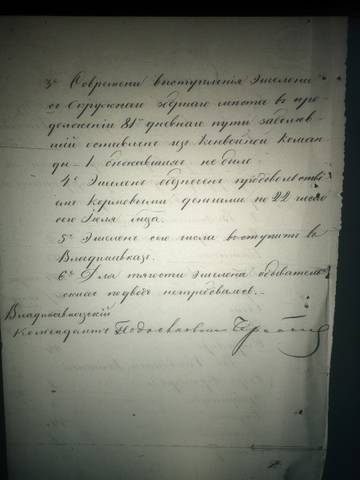 3е Со времени выступленія Эшелона
со Окружнаго сборнаго пункта в про
долженіи 81го дневнаго пути заболев
шій оставлено изъ Конвойной Коман
ды – 1. бежавших не было.
4е Эшелонъ обезпеченъ продовольств
кормовыми деньгами по 22 число
сего Іюля м-ца.
5е Эшелонъ сего числа выступитъ въ
Владикавказъ.
6е Для тягости Эшелона обыватель
скихъ подводъ нетребовалось. –
Владикавказскій
Комендантъ Подполковникъ